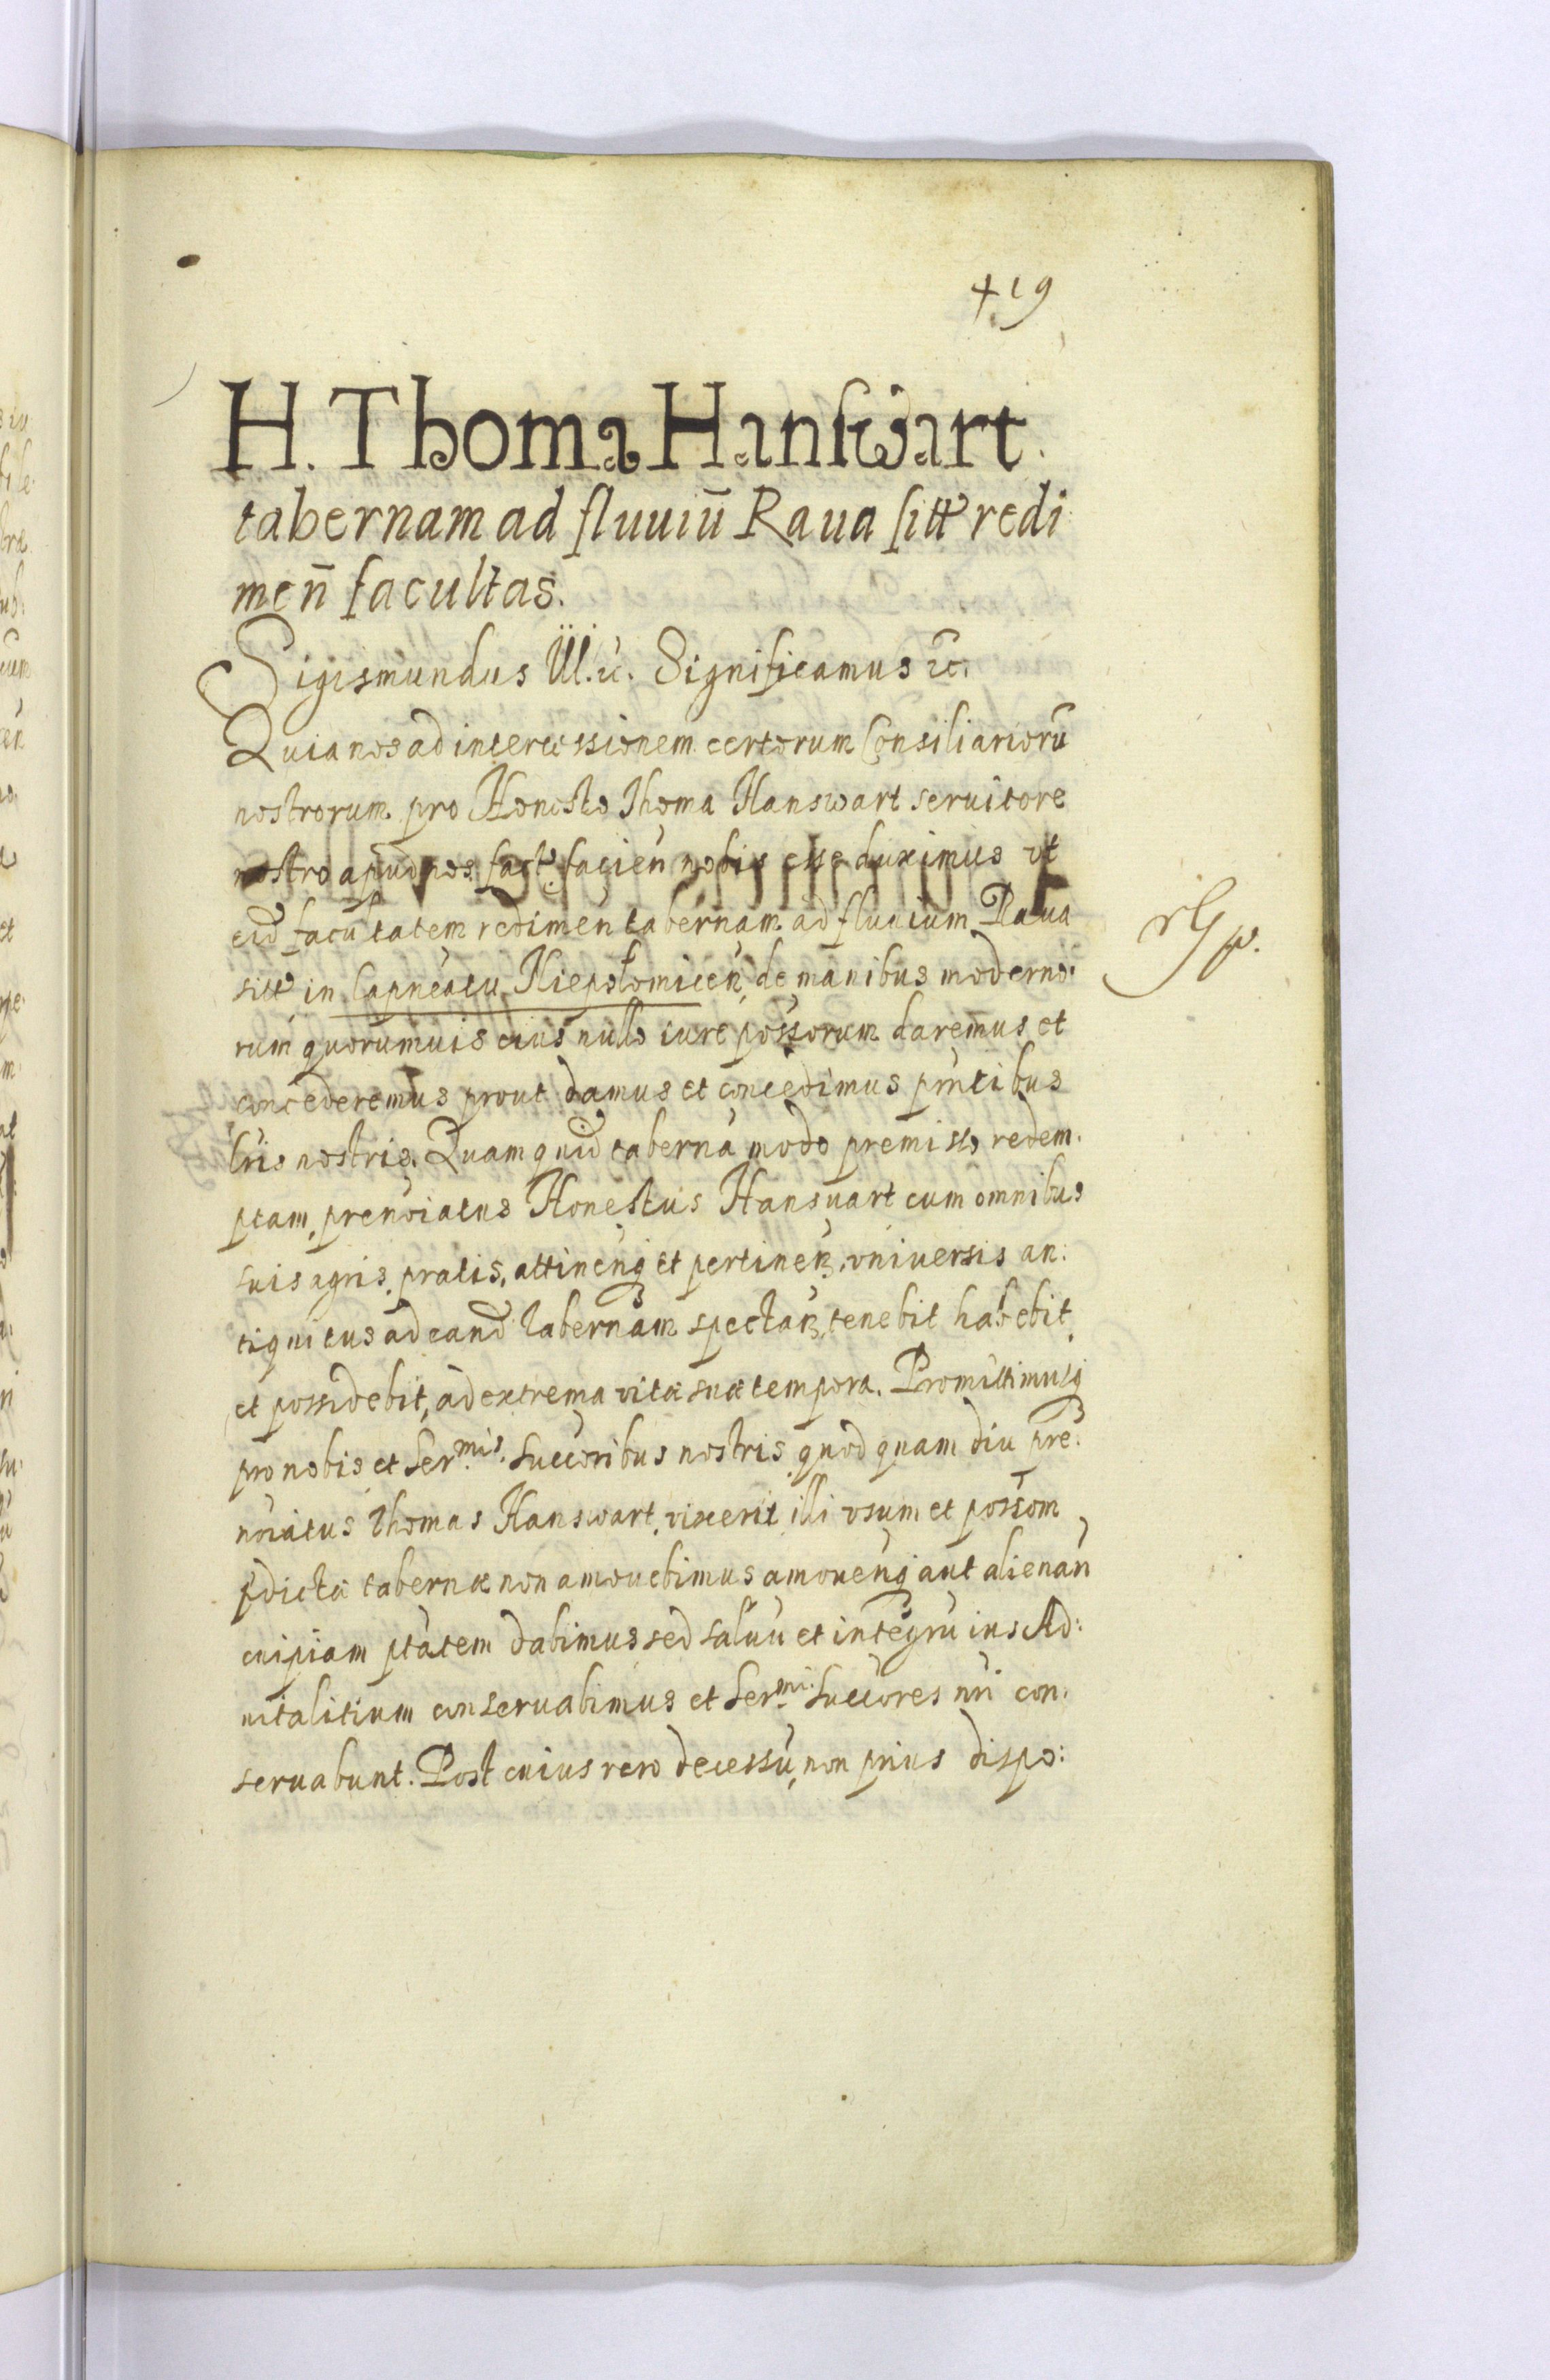 419
H. Thoma Hanswart.
tabernam ad fluuiū Raua sitt redi
men̄ facultas.
Sigismundus III. etc. Significamus etc.
Quia nos ad intercessionem certorum Consiliarioru
nostrorum pro Honesto Thoma Hanswart seruitore
nostro apud nos fact facien nobis esse duximus vt
eid facultatem redimen tabernam ad fluuium Raua
sitt in Capneatu Niepolomicen de manibus moderno
rum quorumuis eius nullo iure possorum daremus et
concederemus prout damus et concedimus pntibus
lris nostris. Quam quid taberna modo premisso redem
ptam, prenoiatus Honestus Hansuart cum omnibus
suis agris, pratis, attinenq et pertinen, vniuersis an:
tiquitus ad eand tabernam spectan, tenebit habebit
et possidebit, ad extrema vitæ suæ tempora. Promittimusq
pro nobis et Ser.mis Succoribus nostris quod quam diu pre:
nōiatus Thomas Hanswart, vixerit illi vsum et possom
pdictæ tabernæ non amouebimus amouenq aut alienan
cuipiam ptatem dabimus sed saluu et integru ius Ad:
uitalitium conseruabimus et Ser.mi Succores nri con
seruabunt. Post cuius vero decessu, non prius dispo: